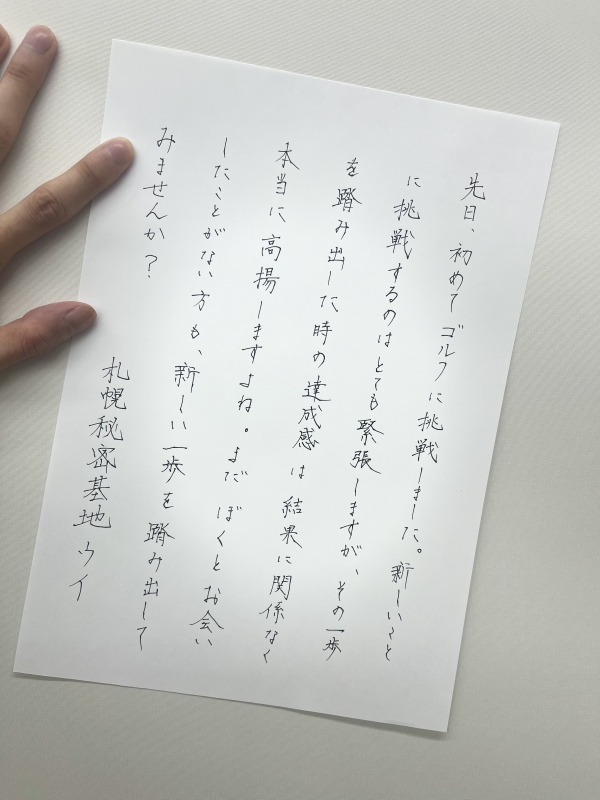 先日、初めてゴルフに挑戦しました。新しいこと
に挑戦するのはとても緊張しますが、その一歩
を踏み出した時の達成感は結果に関係なく
本当に高揚しますよね。まだぼくとお会い
したことがない方も、新しい一歩を踏み出して
みませんか?
札幌秘密基地 ウイ